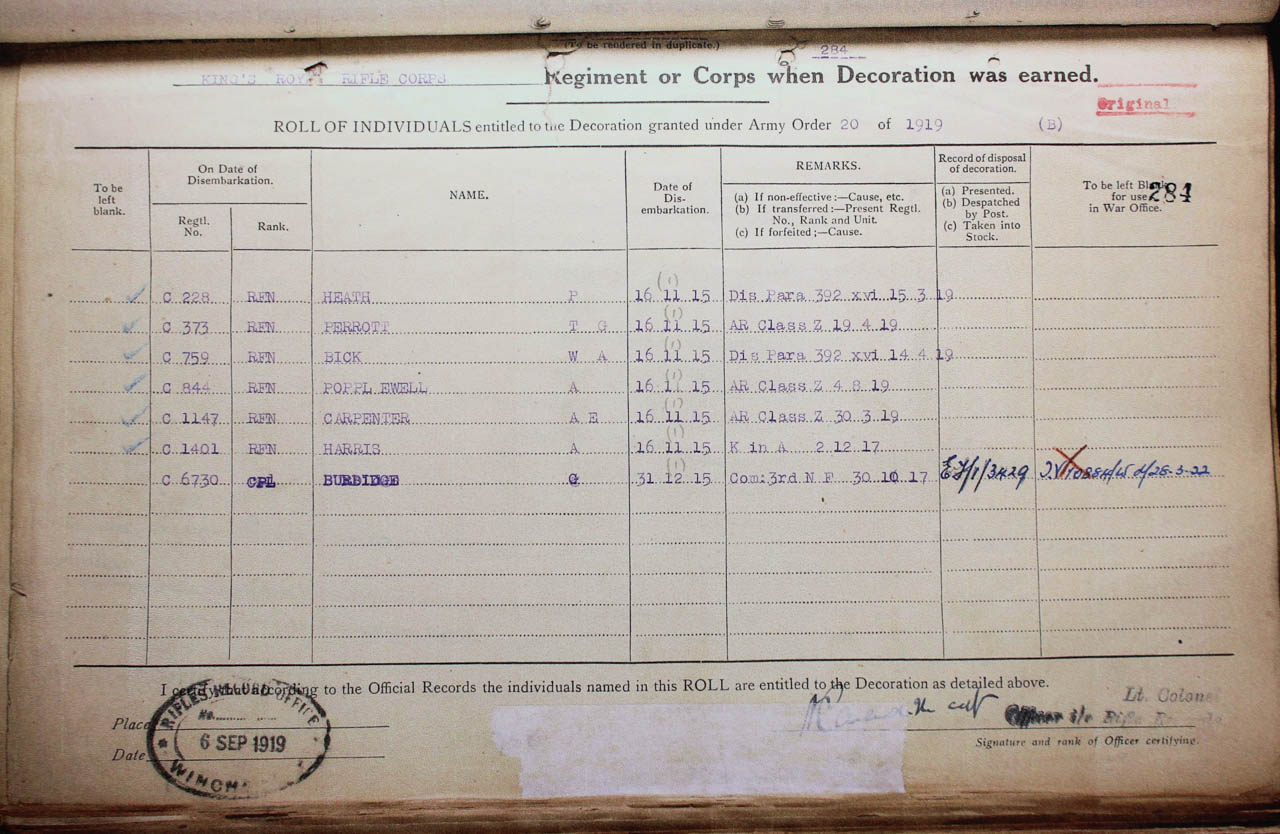 (To be rendered in duplicate.)
284
KING'S ROYAL RIFLE CORPS Regiment or Corps when Decoration was earned.
Original
ROLL OF INDIVIDUALS entitled to the Decoration granted under Army Order 20 of 1919 (B)
To be left blank.
On Date of Disembarkation.
Regtl. No.
Rank.
NAME.
Date of Dis-embarkation.
REMARKS.
(a) If non-effective:—Cause, etc.
(b) If transferred:—Present Regtl. No., Rank and Unit.
(c) If forfeited;—Cause.
Record of disposal of decoration.
(a) Presented.
(b) Despatched by Post.
(c) Taken into Stock.
To be left Blank for use in War Office.
284
C 228 RFN HEATH P 16 11 15 (1) Dis Para 392 xvi 15 3 19
C 373 RFN PERROTT T G 16 11 15 (1) AR Class Z 19 4 19
C 759 RFN BICK W A 16 11 15 (1) Dis Para 392 xvi 14 4 19
C 844 RFN POPPL EWELL A 16 11 15 (1) AR Class Z 4 8 19
C 1147 RFN CARPENTER A E 16 11 15 (1) AR Class Z 30 3 19
C 1401 RFN HARRIS A 16 11 15 (1) K in A 2 12 17
C 6730 CPL BURBIDGE G 31 12 15 (1) Com: 3rd N F 30 10 17 /1/3429 28-3-22
I certify that according to the Official Records the individuals named in this ROLL are entitled to the Decoration as detailed above.
Place
Date
RIFLES RECORD OFFICE
No.
6 SEP 1919
WINCH
Lt. Colonel
Officer i/c Rifle
Signature and rank of Officer certifying.